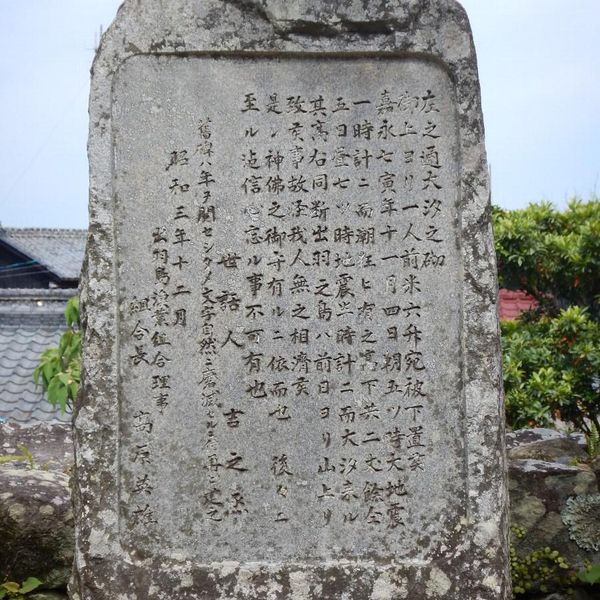 左之通大汐之砌
御上ヨリ一人前米六升宛被下置実
嘉永七寅年十一月四日朝五ツ時大地震
一時計ニ而潮狂ヒ有之高下共二丈餘全
五日昼七ツ時地震半時計ニ而大汐来ル
其高右同断出羽之島ハ前日ヨリ山上リ
致重事故怪我人無之相濟実
是レ神佛之御守有ルニ依而也 後々ニ
至ル迠信心忘ル事不可有也
世話人 吉之丞
舊碑ハ年ヲ閲セシタメ文字自然ニ磨滅ル再ヒ建之
昭和三年十二月
出羽島漁業組合理事
組合長 髙原英雄